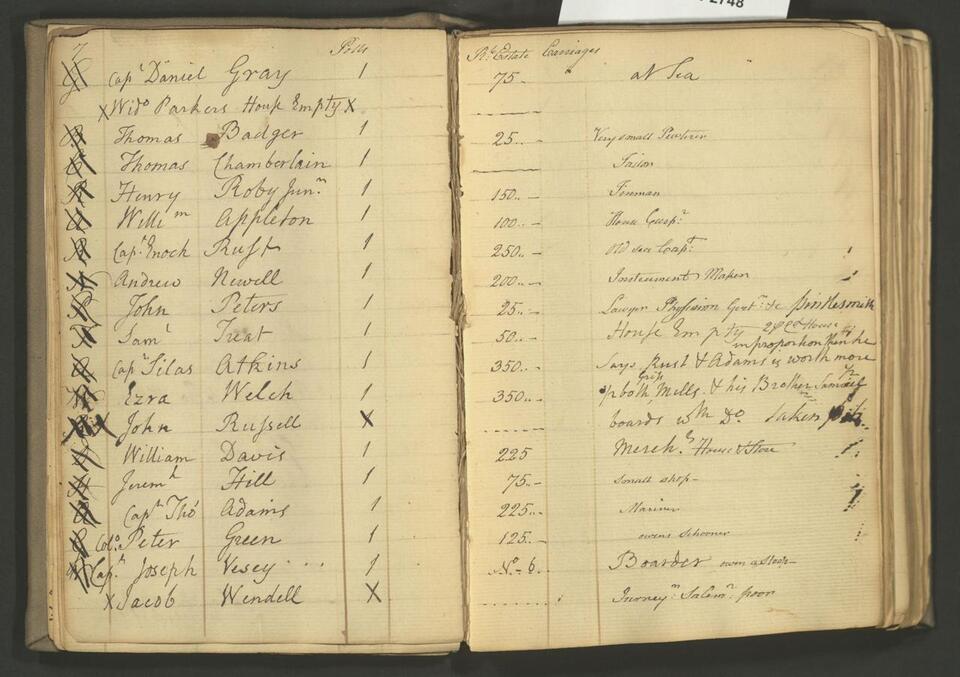 2748
7 Polls Rl. Estate Carriages
Capt Daniel Gray 1 75 " at Sea "
X Wido Parkers House Empty X
Thomas Badger 1 25..- Very small Pewterer
Thomas Chamberlain 1 Tailor
Henry Roby Junr 1 150..- Fireman
Willim Appleton 1 100..- House
Capt Enoch Rust 1 250..- Old sea Capt
Andrew Newell 1 200..- Instrument Maker
John Peters 1 25..- Lawyer Physician &c
Saml Treat 1 50..- House Empty House in proportion then he
Capt Silas Atkins 1 350..- Says Rust & Adams is worth more
Ezra Welch 1 350..- both Mills. & his Brother Samuel
John Russell X boards wth Do. taken
William Davis 1 225 Mercht House & Store
Jeremh Hill 1 75..- small shop-
Capt Tho Adams 1 225..- Mariner
Colo. Peter Green 1 125..- owns schooner
Capt Joseph Vesey 1 No 6. Boarder own a Sloop-
X Jacob Wendell X Journeyn poor